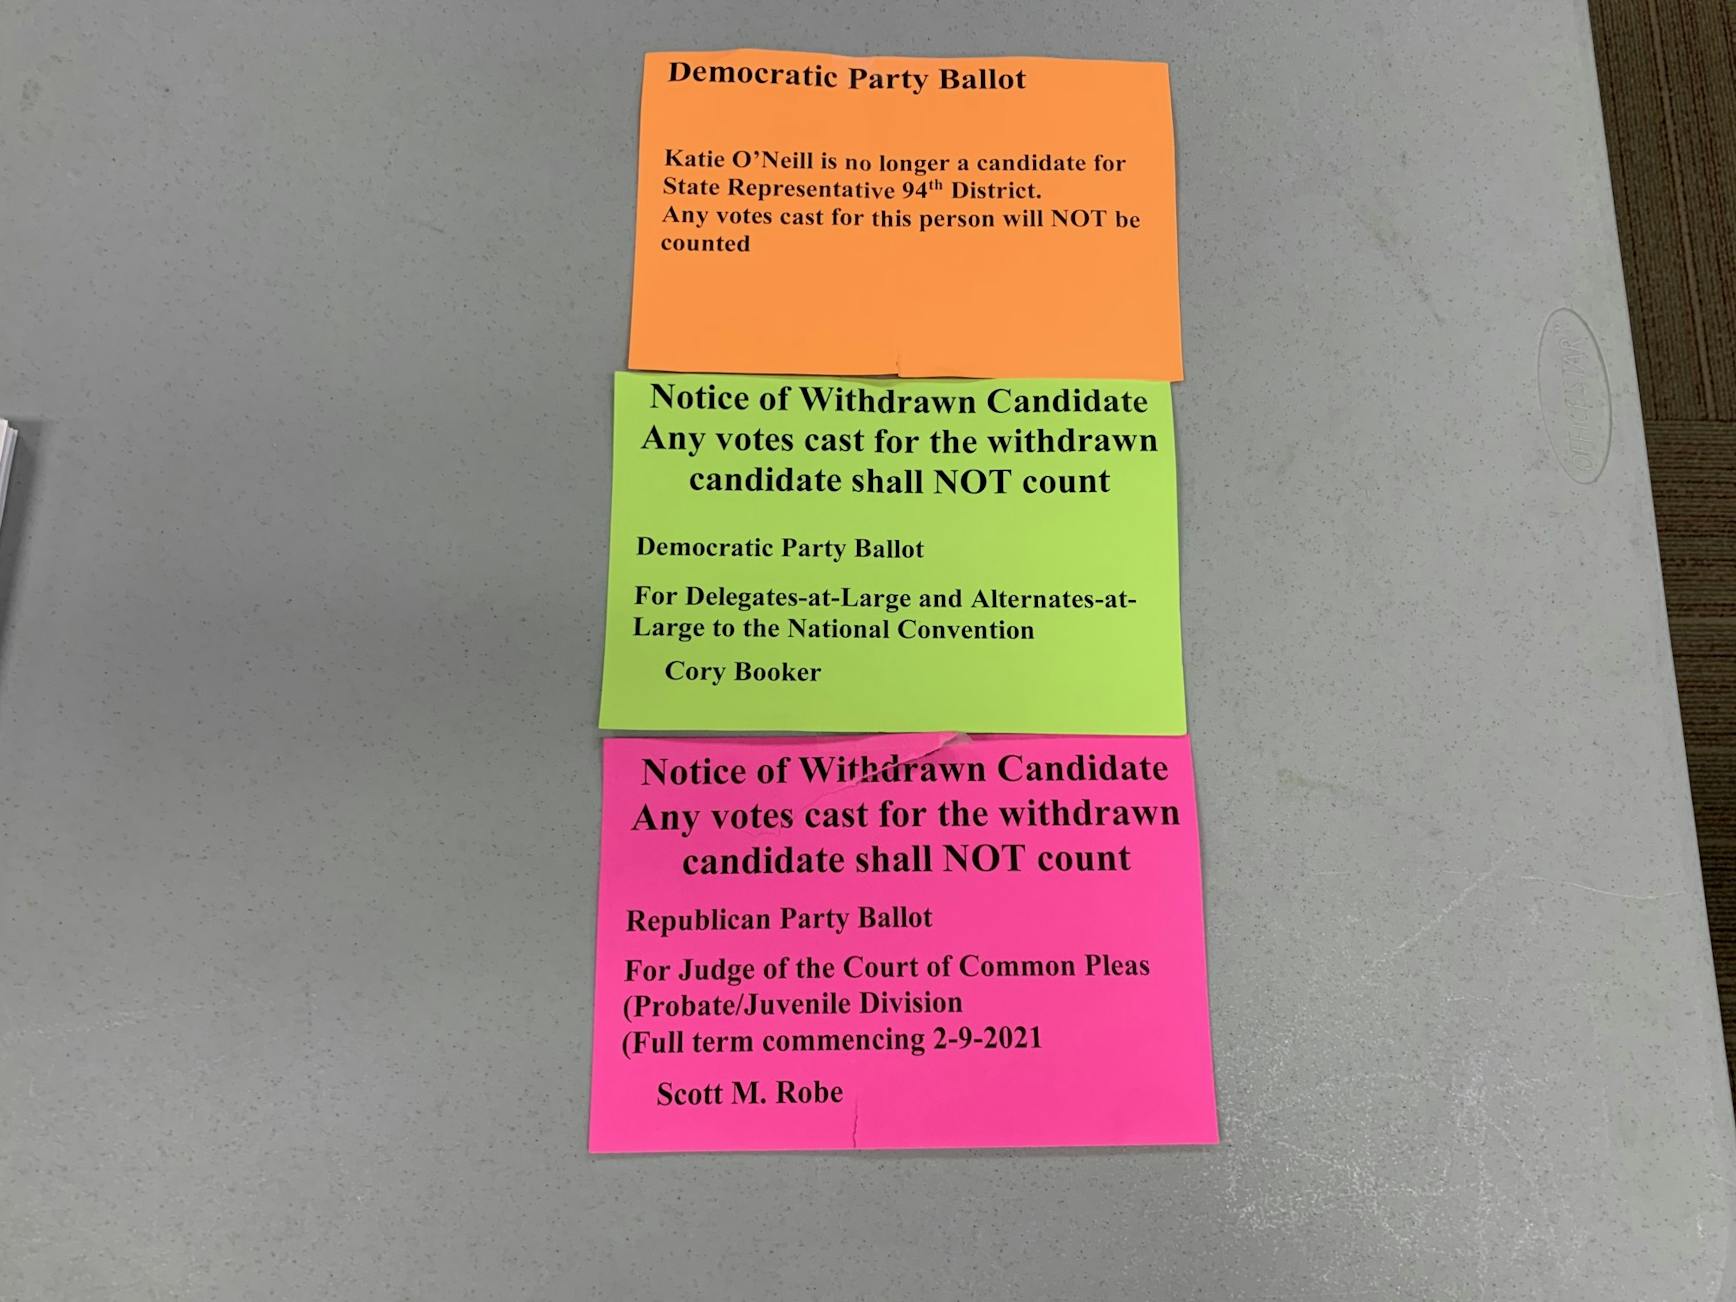 Democratic Party Ballot
Katie O’Neill is no longer a candidate for
State Representative 94th District.
Any votes cast for this person will NOT be
counted
Notice of Withdrawn Candidate
Any votes cast for the withdrawn
candidate shall NOT count
Democratic Party Ballot
For Delegates-at-Large and Alternates-at-
Large to the National Convention
Cory Booker
Notice of Withdrawn Candidate
Any votes cast for the withdrawn
candidate shall NOT count
Republican Party Ballot
For Judge of the Court of Common Pleas
(Probate/Juvenile Division
(Full term commencing 2-9-2021
Scott M. Robe